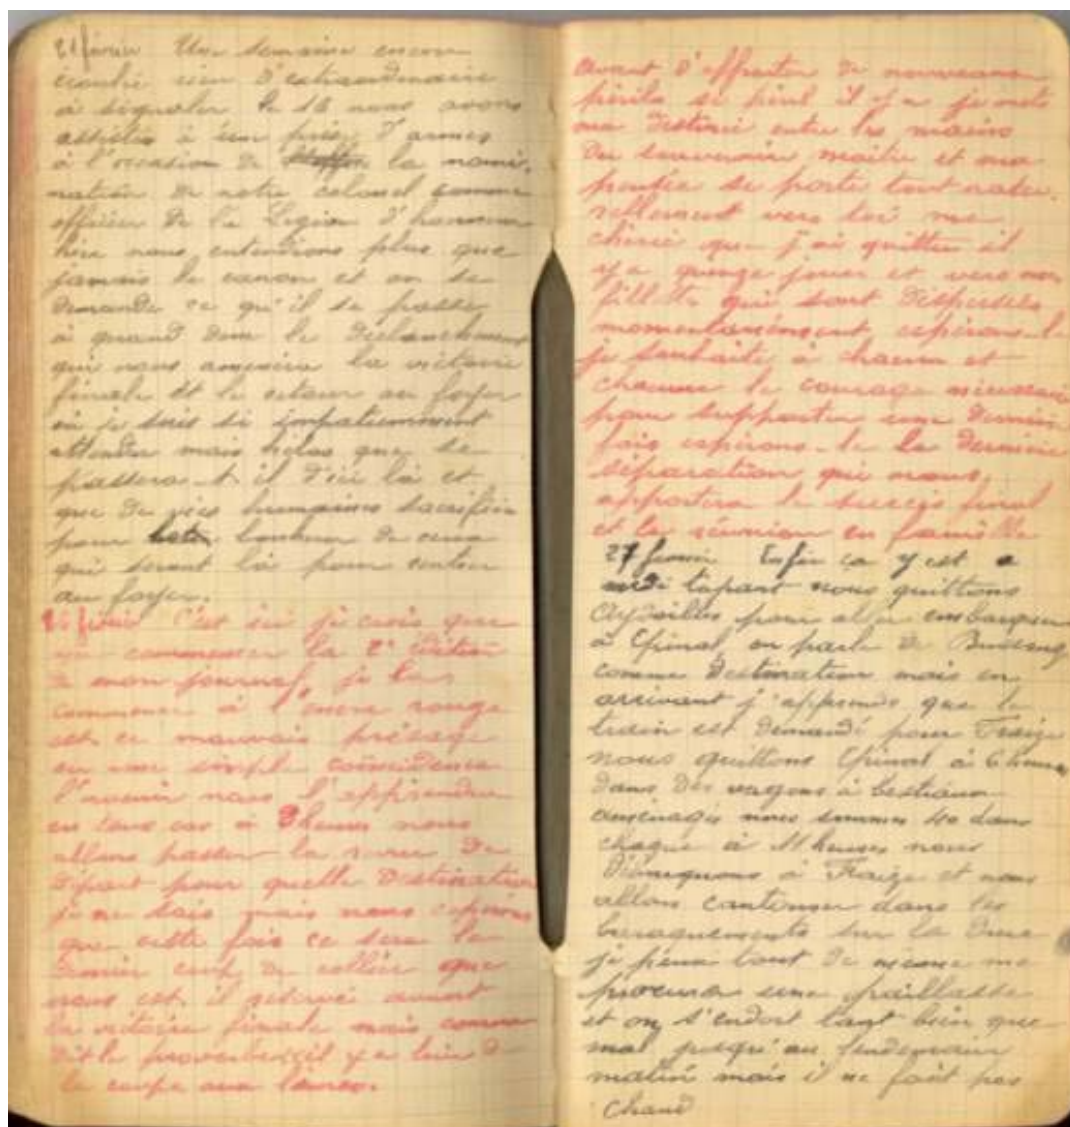 21 février Une semaine encore
écoulée rien d'extraordinaire
à signaler le 16 nous avons
assistés à une prise d'armes
à l'occasion de la nomi-
nation de notre colonel comme
officier de la Légion d'honneur
hier nous entendions plus que
jamais le canon et on se
demande ce qu'il se passe
à quand donc le déclanchement
qui nous amènera la victoire
finale et le retour au foyer
où je suis si impatiemment
attendu mais hélas que se
passera-t-il d'ici là et
que de vies humaines sacrifiées
pour bonheur de ceux
qui seront là pour rentrer
au foyer.
février C'est ici je crois que
commencer la 2e édition
de mon journal, je
commence à l'encre rouge
est ce mauvais présage
ou une simple coïncidence
l'avenir nous l'apprendra
en tous cas à 3 heures nous
allons passer la revue de
départ pour quelle destination
je ne sais mais nous espérons
que cette fois ce sera le
dernier coup de collier que
nous est il réservé avant
la victoire finale mais comme
dit le proverbe qu'il y a loin de
la coupe aux lèvres.
avant d'affronter de nouveaux
périls si péril il y a je mets
ma destinée entre les mains
du souverain maître et ma
pensée se porte tout natu-
rellement vers toi ma
chérie que j'ai quittée il
y a quinze jours et vers nos
fillettes qui sont dispersées
momentanément, espérons-le
je souhaite à chacun et
chacune le courage nécessaire
pour supporter une dernière
fois espérons-le la dernière
séparation qui nous
apportera le succès final
et la réunion en famille
27 février Enfin ca y est a
midi tapant nous quittons
Aydoilles pour aller embarquer
à Epinal, on parle de Bussang
comme destination mais en
arrivant j'apprends que le
train est demandé pour Fraize
nous quittons Epinal à 6 heures
dans des wagons à bestiaux
aménagés nous sommes 40 dans
chaque à 11 heures nous
débarquons à Fraize et nous
allons cantonner dans les
baraquements sur la
je peux tout de même me
procurer une paillasse
et on s'endort tant bien que
mal jusqu'au lendemain
matin mais il ne fait pas
chaud